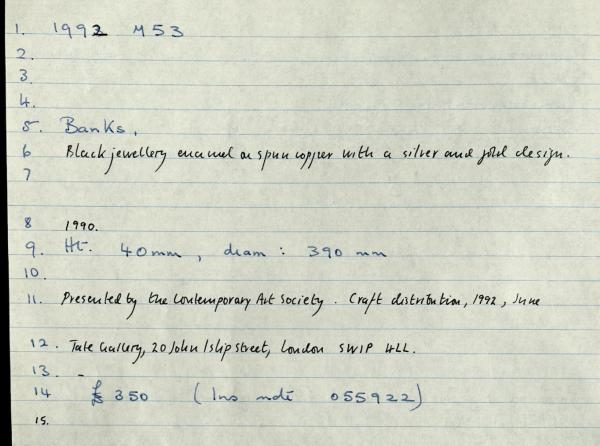 1. 1992 M53
2.
3.
4.
5. Banks,
6 Black jewellery enamel on spun copper with a silver and gold design.
7
8 1990.
9. Ht. 40mm, diam: 390 mm
10.
11. Presented by the Contemporary Art Society. Craft distribution, 1992, June
12. Tate Gallery, 20 John Islip Street, London SW1P 4LL.
13. -
14 £350 (Ins note 055922)
15.